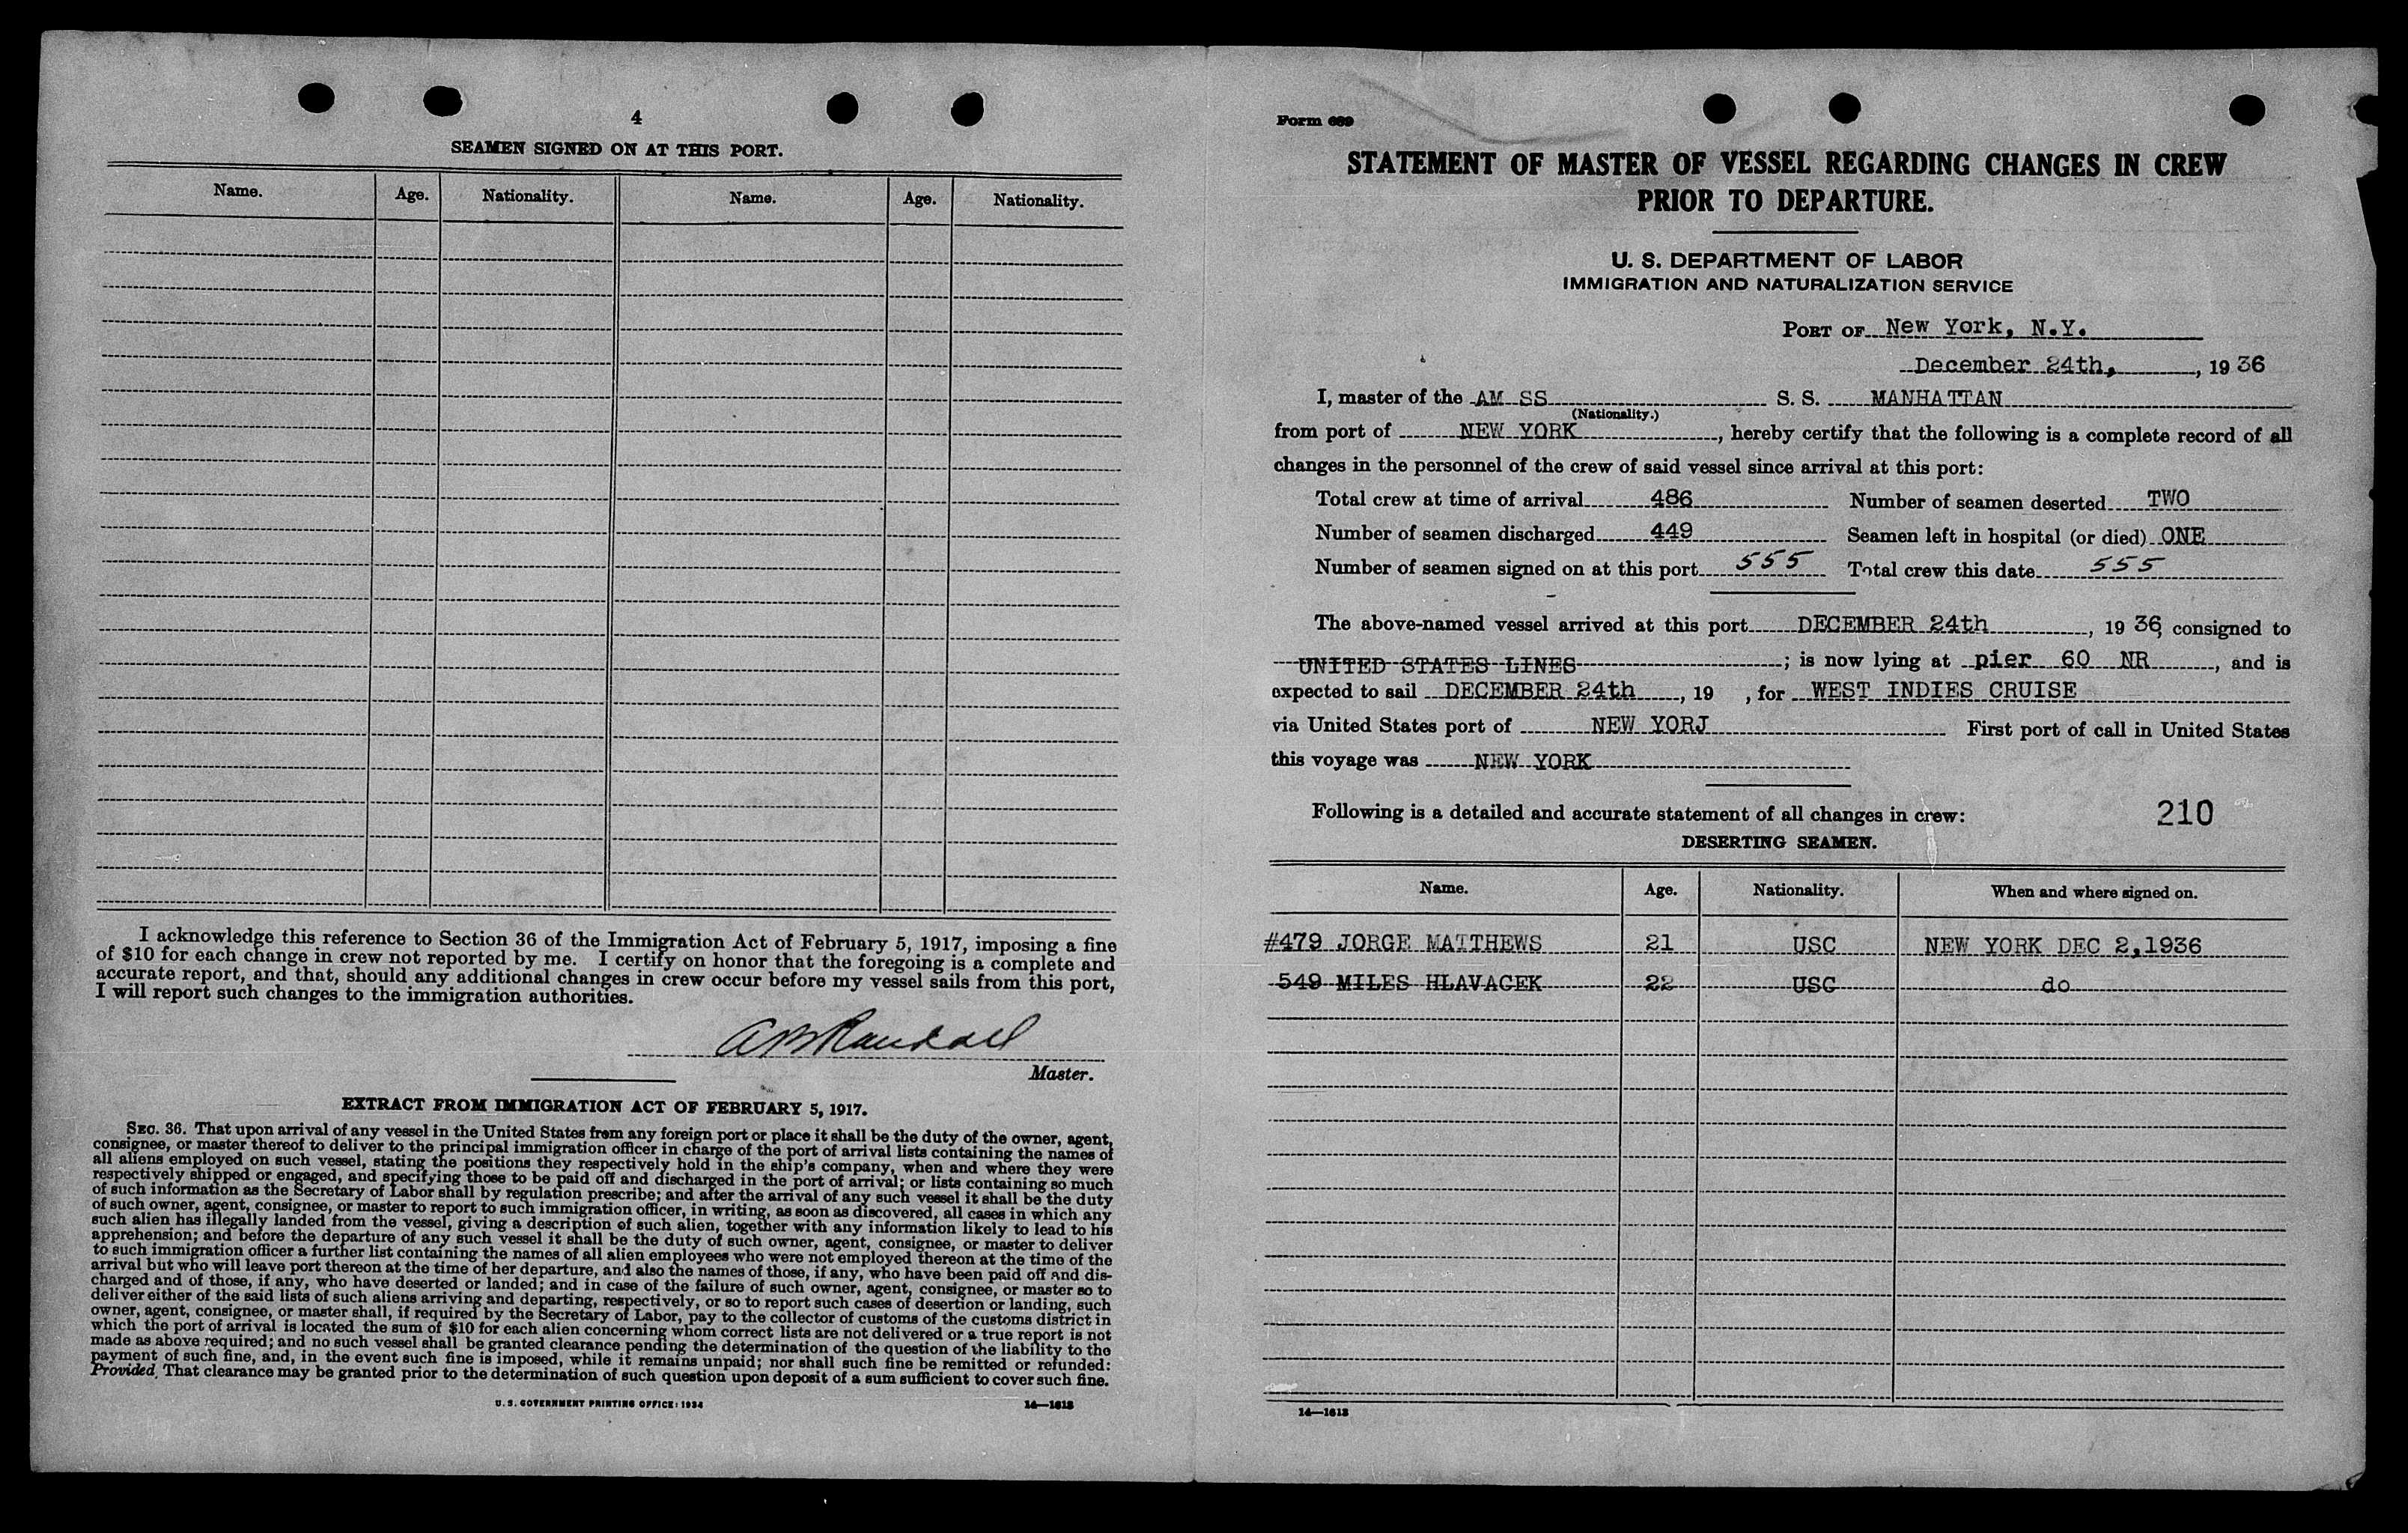 4
SEAMEN SIGNED ON AT THIS PORT.
Name. Age. Nationality. Name. Age. Nationality.
I acknowledge this reference to Section 36 of the Immigration Act of February 5, 1917, imposing a fine
of $10 for each change in crew not reported by me. I certify on honor that the foregoing is a complete and
accurate report, and that, should any additional changes in crew occur before my vessel sails from this port,
I will report such changes to the immigration authorities.
A B Randall
Master.
EXTRACT FROM IMMIGRATION ACT OF FEBRUARY 5, 1917.
SEC. 36. That upon arrival of any vessel in the United States from any foreign port or place it shall be the duty of the owner, agent,
consignee, or master thereof to deliver to the principal immigration officer in charge of the port of arrival lists containing the names of
all aliens employed on such vessel, stating the positions they respectively hold in the ship's company, when and where they were
respectively shipped or engaged, and specifying those to be paid off and discharged in the port of arrival; or lists containing so much
of such information as the Secretary of Labor shall by regulation prescribe; and after the arrival of any such vessel it shall be the duty
of such owner, agent, consignee, or master to report to such immigration officer, in writing, as soon as discovered, all cases in which any
such alien has illegally landed from the vessel, giving a description of such alien, together with any information likely to lead to his
apprehension; and before the departure of any such vessel it shall be the duty of such owner, agent, consignee, or master to deliver
to such immigration officer a further list containing the names of all alien employees who were not employed thereon at the time of the
arrival but who will leave port thereon at the time of her departure, and also the names of those, if any, who have been paid off and dis-
charged and of those, if any, who have deserted or landed; and in case of the failure of such owner, agent, consignee, or master so to
deliver either of the said lists of such aliens arriving and departing, respectively, or so to report such cases of desertion or landing, such
owner, agent, consignee, or master shall, if required by the Secretary of Labor, pay to the collector of customs of the customs district in
which the port of arrival is located the sum of $10 for each alien concerning whom correct lists are not delivered or a true report is not
made as above required; and no such vessel shall be granted clearance pending the determination of the question of the liability to the
payment of such fine, and, in the event such fine is imposed, while it remains unpaid; nor shall such fine be remitted or refunded:
Provided, That clearance may be granted prior to the determination of such question upon deposit of a sum sufficient to cover such fine.
U. S. GOVERNMENT PRINTING OFFICE: 1934 14—1613
Form 689
STATEMENT OF MASTER OF VESSEL REGARDING CHANGES IN CREW
PRIOR TO DEPARTURE.
U. S. DEPARTMENT OF LABOR
IMMIGRATION AND NATURALIZATION SERVICE
PORT OF New York, N.Y.
December 24th, , 19 36
I, master of the AM SS S. S. MANHATTAN
(Nationality.)
from port of NEW YORK , hereby certify that the following is a complete record of all
changes in the personnel of the crew of said vessel since arrival at this port:
Total crew at time of arrival 486 Number of seamen deserted TWO
Number of seamen discharged 449 Seamen left in hospital (or died) ONE
Number of seamen signed on at this port 555 Total crew this date 555
The above-named vessel arrived at this port DECEMBER 24th , 19 36, consigned to
UNITED STATES LINES ; is now lying at pier 60 NR , and is
expected to sail DECEMBER 24th , 19 , for WEST INDIES CRUISE
via United States port of NEW YORJ First port of call in United States
this voyage was NEW YORK
Following is a detailed and accurate statement of all changes in crew: 210
DESERTING SEAMEN.
Name. Age. Nationality. When and where signed on.
#479 JORGE MATTHEWS 21 USC NEW YORK DEC 2,1936
549 MILES HLAVACEK 22 USC do
14—1613